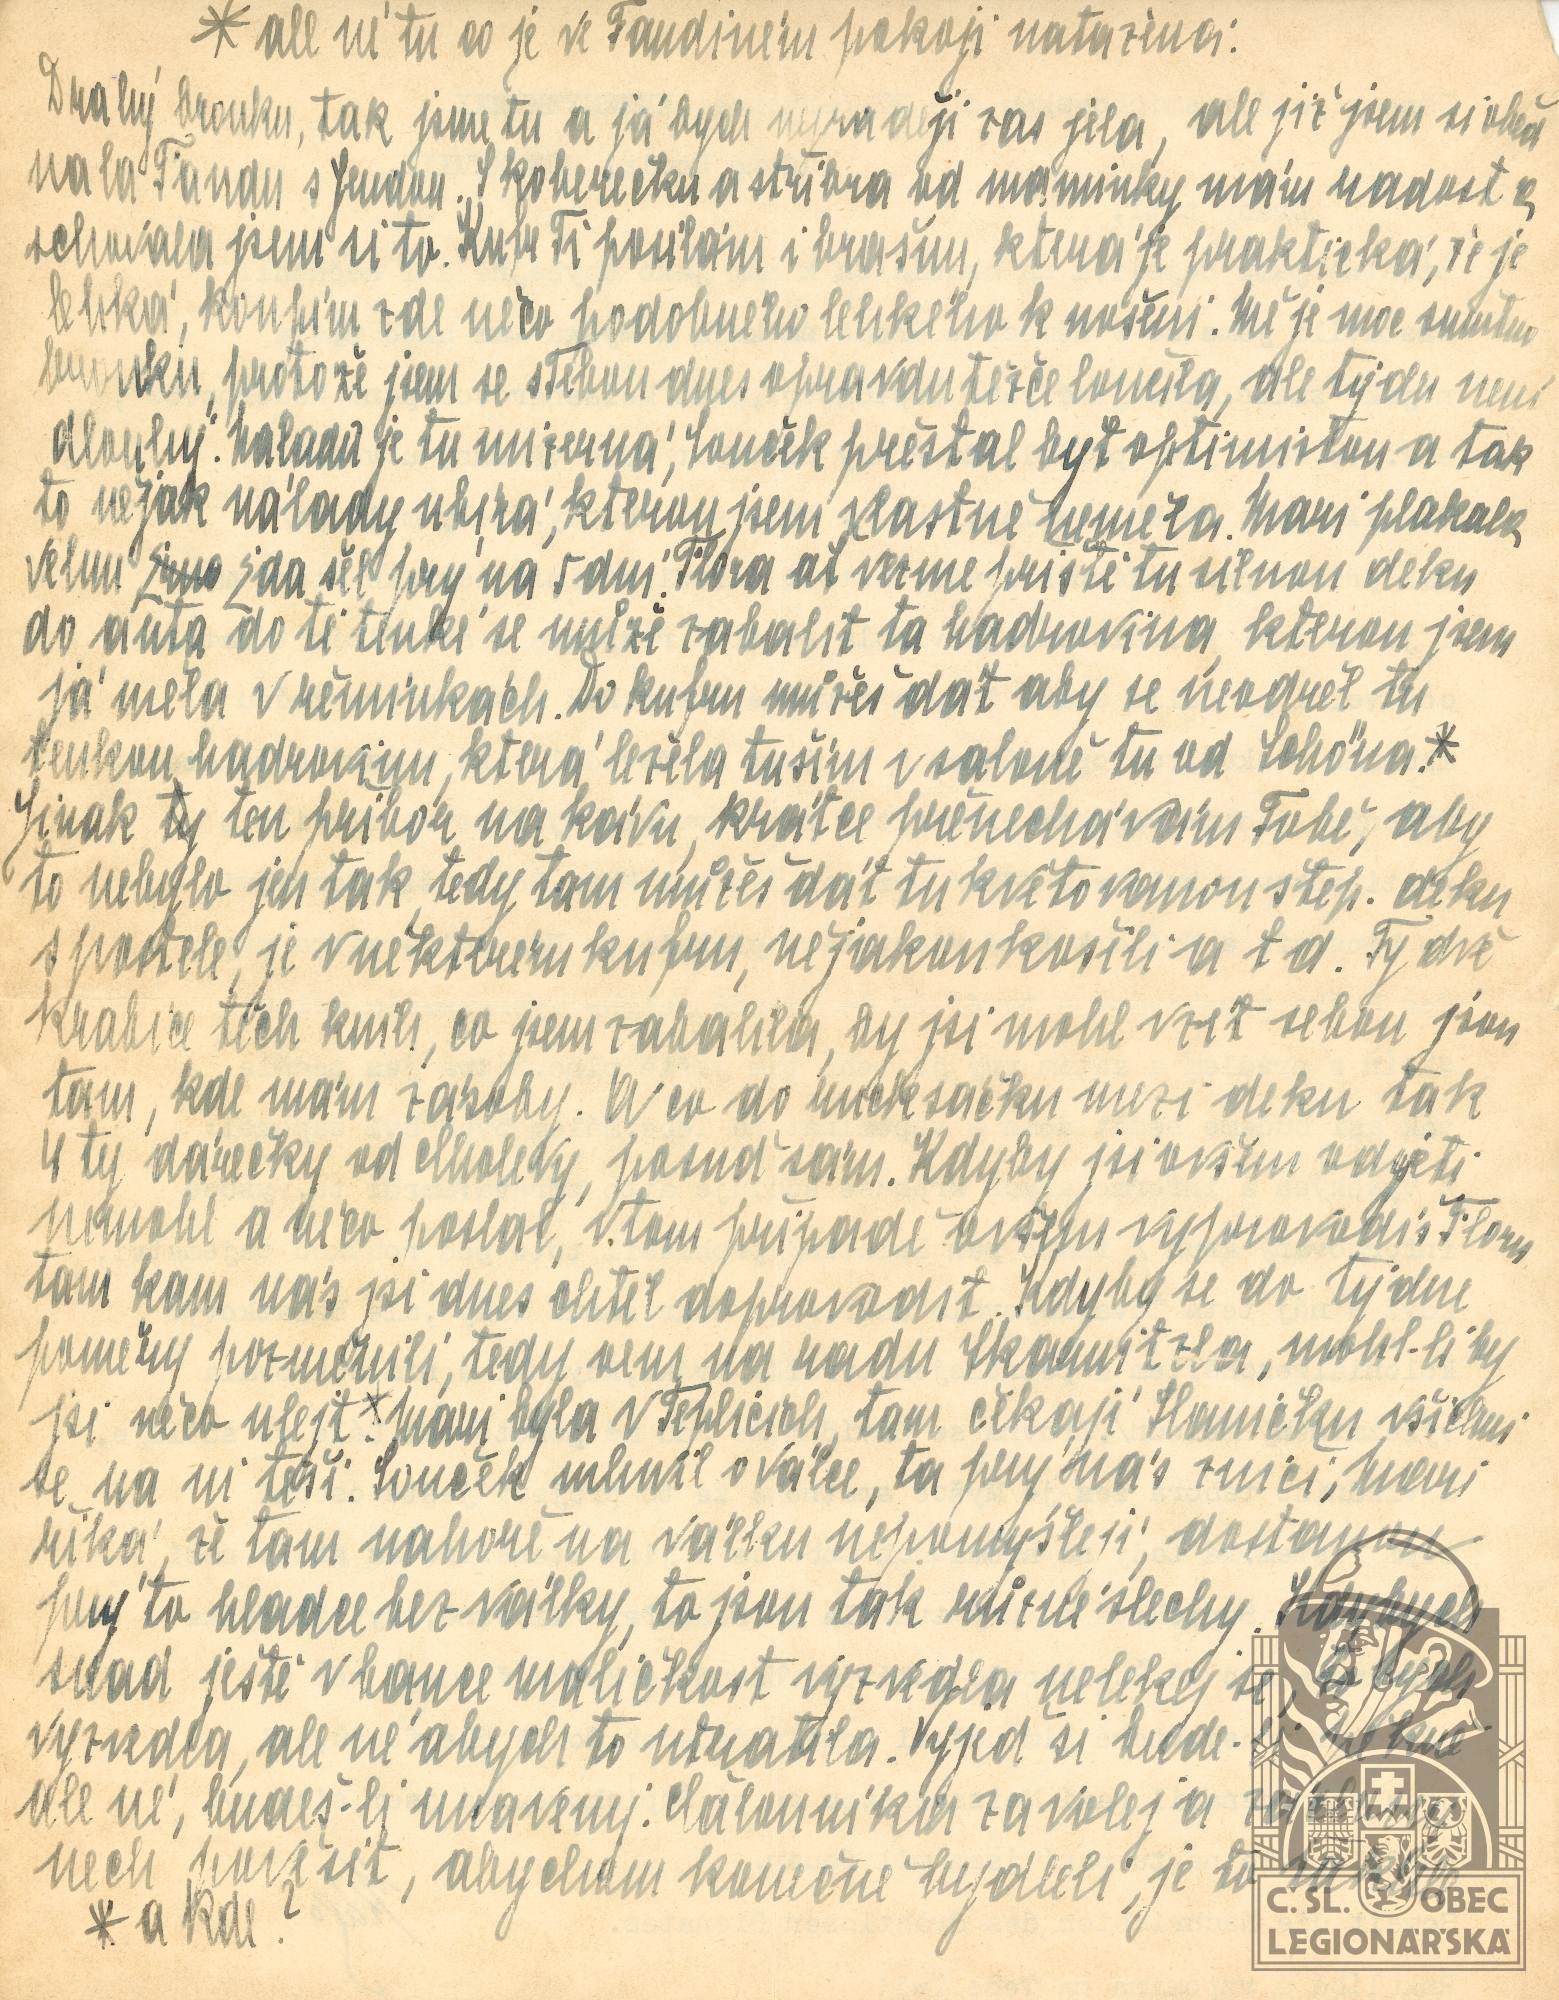 * ale né tu co je ve Fandiném pokoji natažena:
Drahý brouku, tak jsme tu a já bych nejraději zas jela, ale již jsem si oběd
nala Fandu s Jendou. S koberečku a stříbra od maminky mám radost a
schovala jsem si to. Kufr Ti posílám i brašnu, která je praktická, že je
lehká, koupím zde něco podobného lehkého k nošení. Mě je moc smutno
brouku, protože jsem se s Tebou dnes opravdu těžce loučila, ale týden není
dlouhý. Nálada je tu mizerná, Souček přestal být optimistou a tak
to nějak nálady ubírá, kterou jsem vlastně neměla. Mari plakala
velmi Eda šel prý na 5 dní. Flora ať vezme příště tu silnou deku
do auta do té tenké se může zabalit ta hadrovina kterou jsem
já měla v řemínkách. Do kufru můžeš dát aby se neodřel tu
tenkou hadrovinu, která ležela tuším v saloně tu od Schöna.*
Jinak ty ten příbor na kávu, krátce přenechávám Tobě, aby
to nebylo jen tak, tedy tam můžeš dát tu květovanou štep. deku
s postele, je v některém kufru, nějakou košili a t d. Ty dvě
krabice těch knih, co jsem zabalila, by jsi mohl vzít sebou jsou
tam, kde mám zásoby. A co do rucksačku mezi deku tak
4 ty dárečky od Cholevy, posuď sám. Kdyby jsi ovšem odjeti
nemohl a něco poslal, v tom případě ovšem vyprovodíš Floru
tam kam nás jsi dnes chtěl doprovodit. Kdyby se do týdne
poměry pozměnili, tedy vem na radu Skamitzla, mohl-li by
jsi něco ulejt.* Mari byla v Teplicích, tam čekají Slavičku všichni
se na ni těší. Souček mluvil o válce, ta prý nás zničí, Mari
říká, že tam nahoře na válku nepomýšlejí, dostanou
prý to hladce bez války, to jsou tak různé šlechy. Kdybych
snad ještě v bance maličkost vyzvedla nelekej se, bych
vyzvedla, ale né abych to utratila. Vyjeď si bude-li
ale né, budeš-li unavený. Čalouníka zavolej a
nech pověsit, abychom konečně bydleli, je to
* a kde?
Č. SL. OBEC
LEGIONÁŘSKÁ